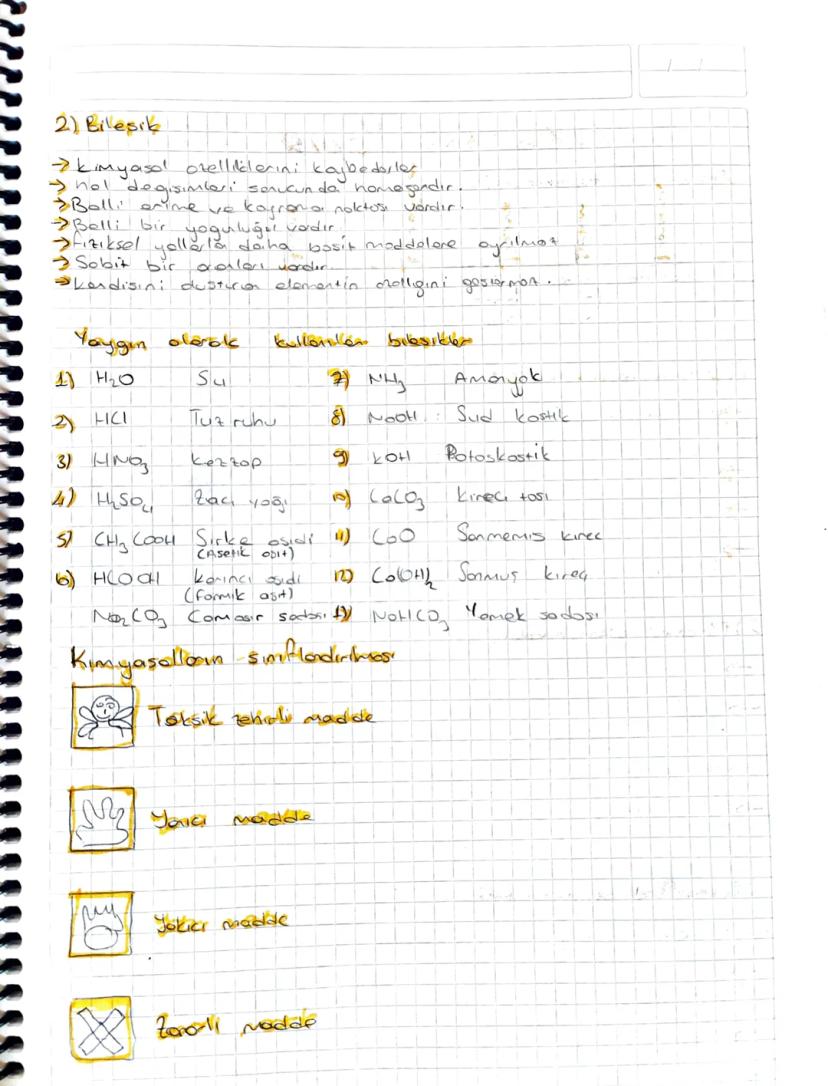 2) Bileşik
→ Kimyasal özelliklerini kaybederler
→ hal değişimleri sonucunda homojendir.
→ Belli erime ve kaynama noktası vardır.
→ Belli bir yoğuluğu vardır.
→ Fiziksel yollarla daha basit maddelere ayrılmaz
→ Sabit bir oranları vardır.
→ Kendisini oluşturan elementin özelliğini göstermez.
Yaygın olarak kullanılan bileşikler
1) H₂O Su 7) NH₃ Amonyak
2) HCl Tuz ruhu 8) NaOH : Sud kostik
3) HNO₃ Kezzap 9) KOH Potaskostik
4) H₂SO₄ Zaç yağı 10) CaCO₃ Kireç taşı
5) CH₃COOH Sirke asidi 11) CaO Sönmemiş kireç
(Asetik asit)
6) HCOOH Karınca asidi 12) Ca(OH)₂ Sönmüş kireç
(formik asit)
Na₂CO₃ Çamaşır sodası 13) NaHCO₃ Yemek sodası
Kimyasalların sınıflandırılması
Toksik zehirli madde
Yanıcı madde
Yakıcı madde
Zararlı madde